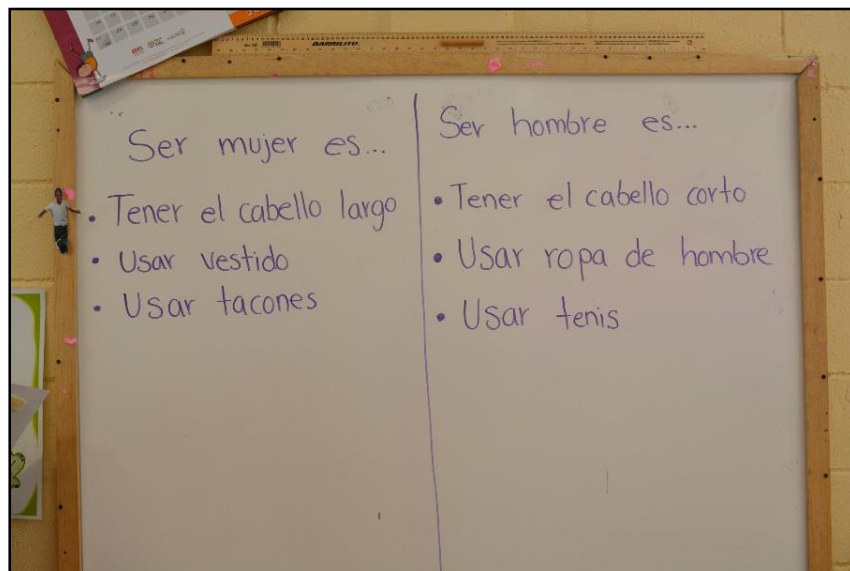 BARRILITO.
Ser mujer es...
• Tener el cabello largo
• Usar vestido
• Usar tacones
Ser hombre es...
• Tener el cabello corto
• Usar ropa de hombre
• Usar tenis